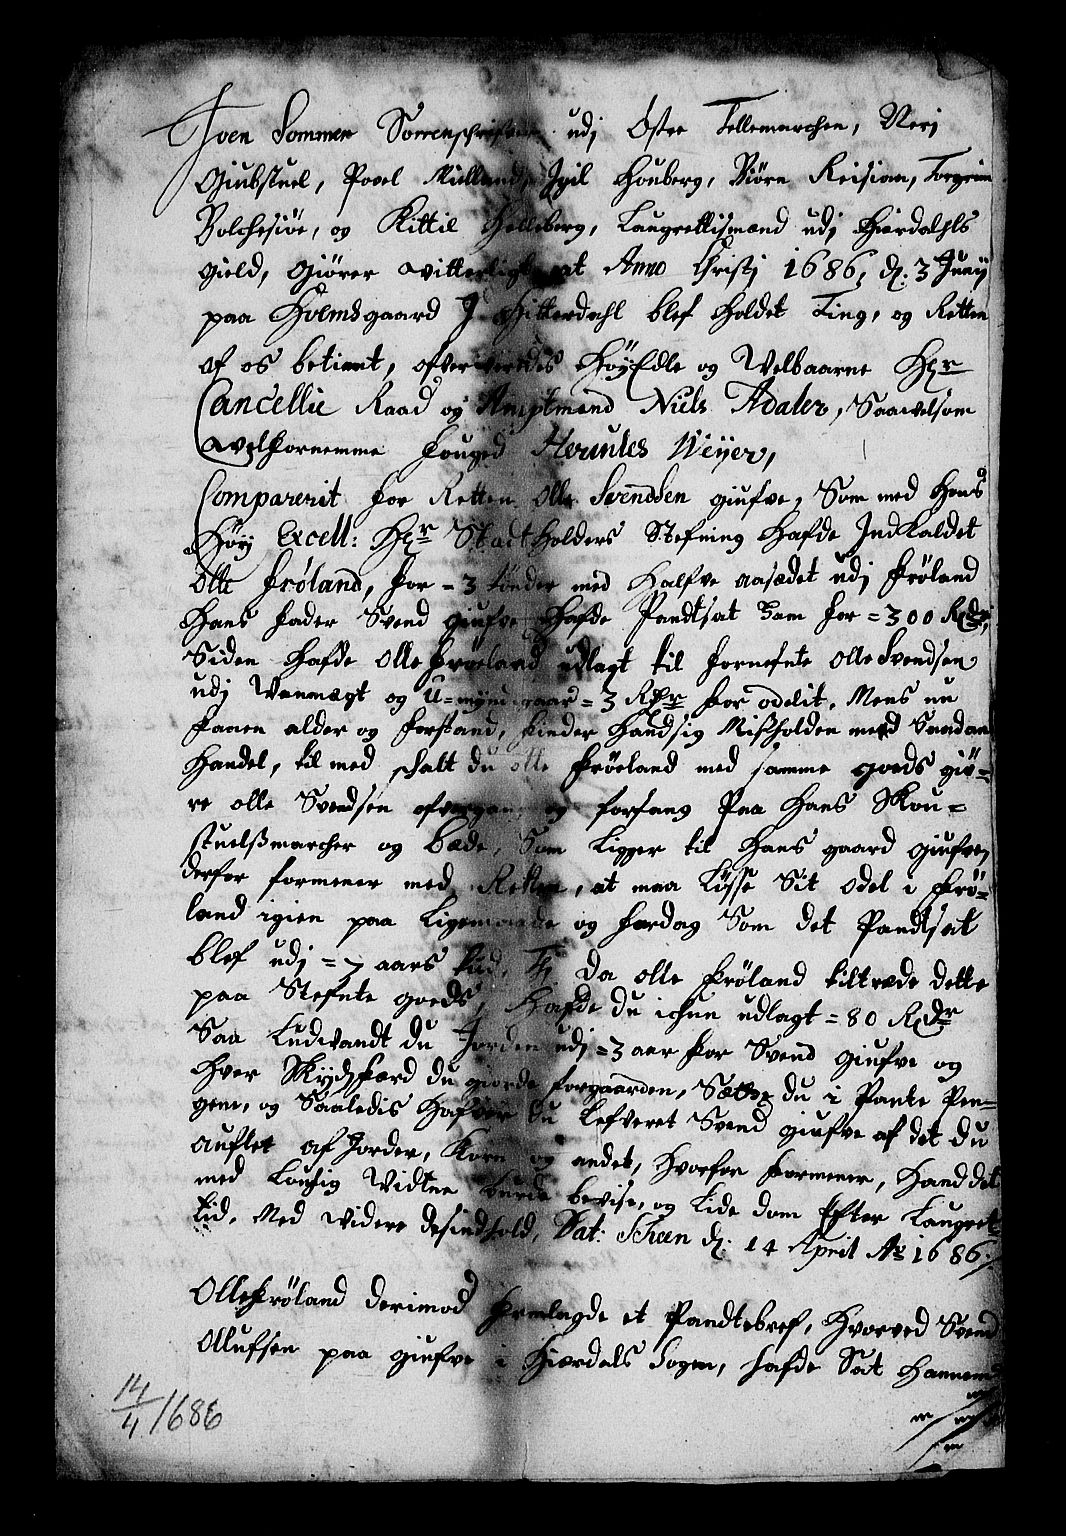 Joen Sommer Sorrenschrifver udj Øster Tellemarchen, Neri
Giubstuel, Povel Mielland, Jgil Houberg, Biörn Reisian, Torgrim
Bolchesiöe, og Kittil Helleberg, Laugrettismænd udj Hierdahls
gield, Giører vitterligt at Anno Christj 1686, d: 3 Junij
paa Hvemsgaard J Hitterdahl blef holdet Ting, og Retten
af os betient, ofververedes HöyEdle og Velbaarne Hr
Cancellie Raad og Amptmand Niels Adaler, Saavelsom
velfornemme fouged Herculес Weyer,
Comparerit for Retten Olle Svendsen giufve, Som med Hans
Höy Excell: Hr Stadtholders Stefning hafde Jndkaldet
Olle Fröland, for = 3 tönder med halfve aasædet udj Fröland
Hans fader Svend giufve hafde Pandtsat ham for = 300 Rdr,
Siden hafde Olle Fröeland udlagt til fornefnte Olle Svendsen
udj Vanmægt og U=mynd = 3 Rdr for odelit, Mens nu
faaen alder og forstand, finder hand sig Misholden med Saadan
Handel, til med schalt du Olle Fröeland med samme goeds giö=
re olle Svendsen ofvergang og forfang paa Hans Skou=
stuelsmarcher og bæde, Som ligger til Hans gaard giufve,
derfor formener med Retten, at maa Lösse Sit odel i Frö=
land igien paa Ligemaade og fardag Som det Pandtsat
blef udj = 7 aars tiid, Thi da olle Fröland tiltræde dette
paa Stefnte goeds, hafde du ichun udlagt = 80 Rdr
Saa Ludvandt du Jorden udj = 3 aer for Svend giufve og
hver Skydsfærd du giorde forgaarden, Satte du i Pante Pen=
gene, og Saaledis hafver du lefveret Svend giufve af det du
auflet af Jorder, Korn og andet, hvorfor formener, hand det
med Louflig Vidtne burde bevise, og lide dom Efter Laugret
tid, Med videre desindhold, Dat: Scheen d: 14 April Ao 1686.
Olle Fröland derimod fremlagde et Pandtebref, hvorved Svend
Ollufsen paa giufve i Hierdals Sogen, hafde Sat hannem
14/4 1686